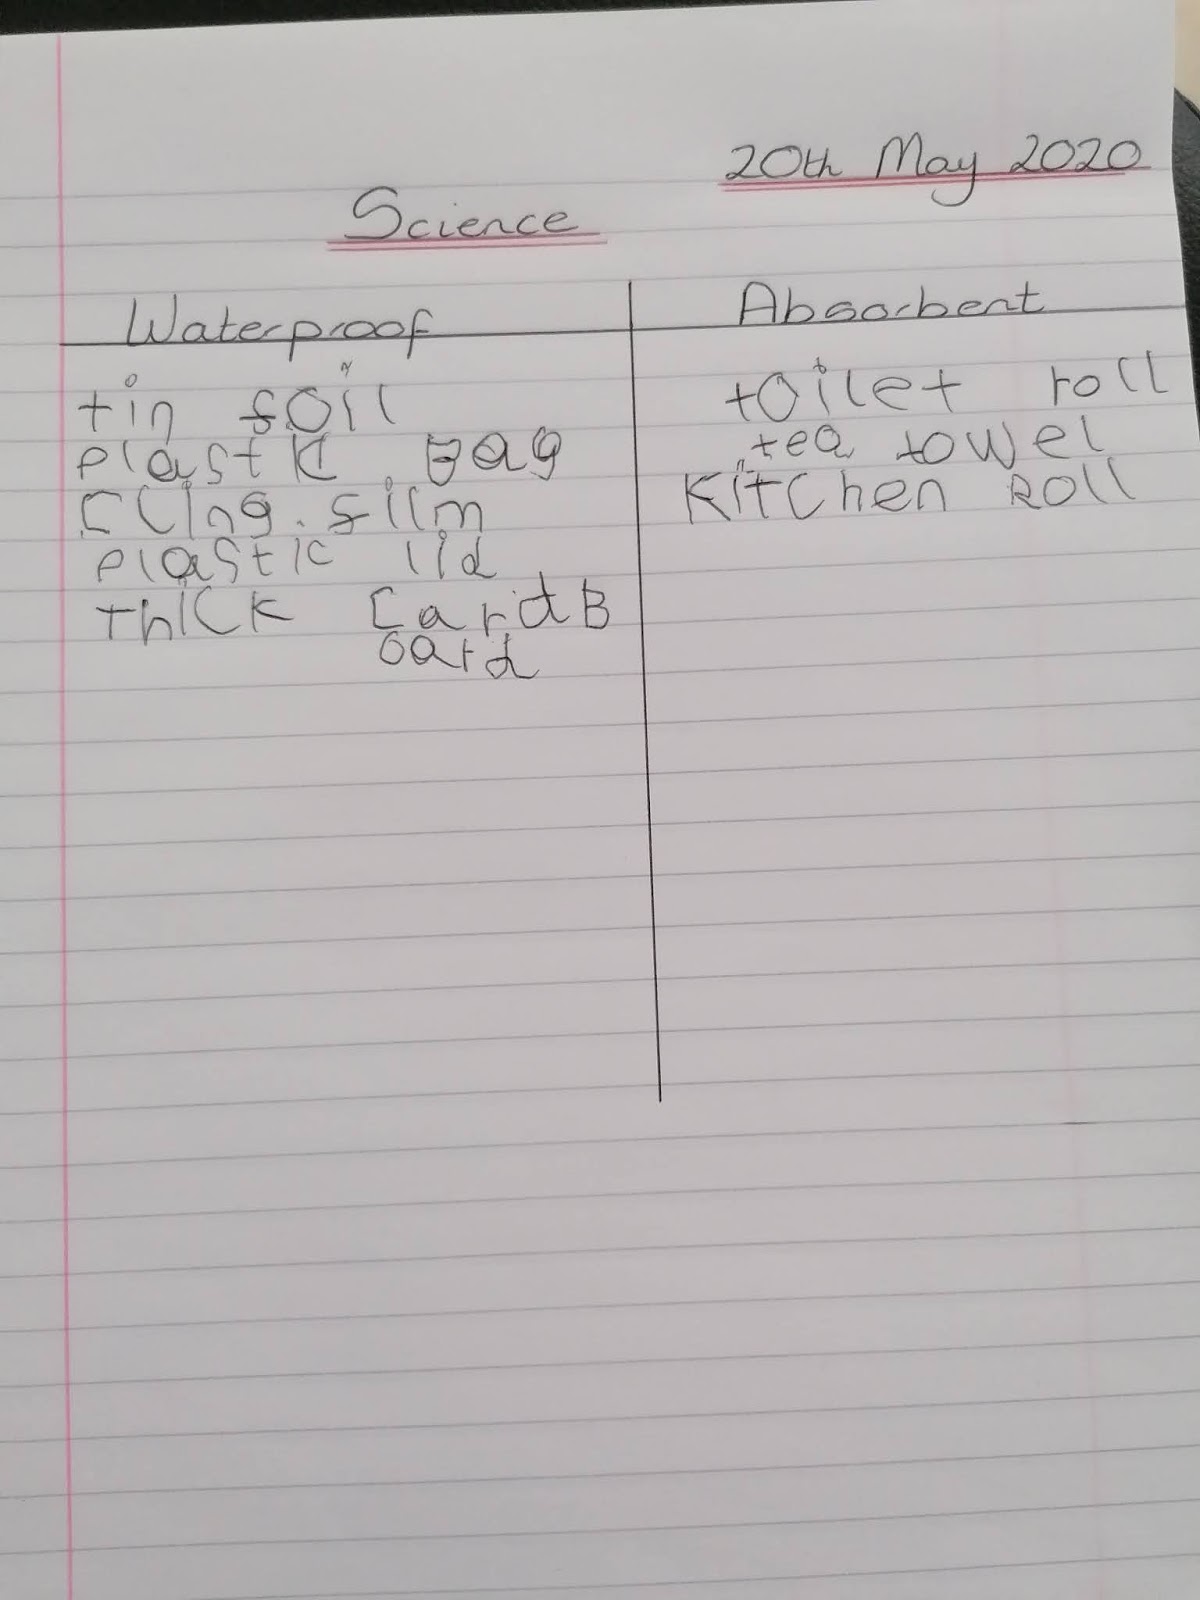 20th May 2020
Science
Waterproof Absorbent
tin foil toilet roll
plastic Bag tea towel
cling film kitchen Roll
plastic lid
thick cardB
oard